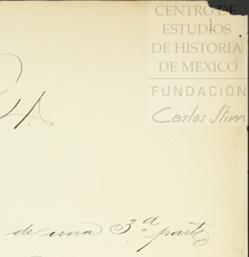 CENTRO DE
ESTUDIOS
DE HISTORIA
DE MEXICO
FUNDACIÓN
Carlos Slim
de una 3ª parte